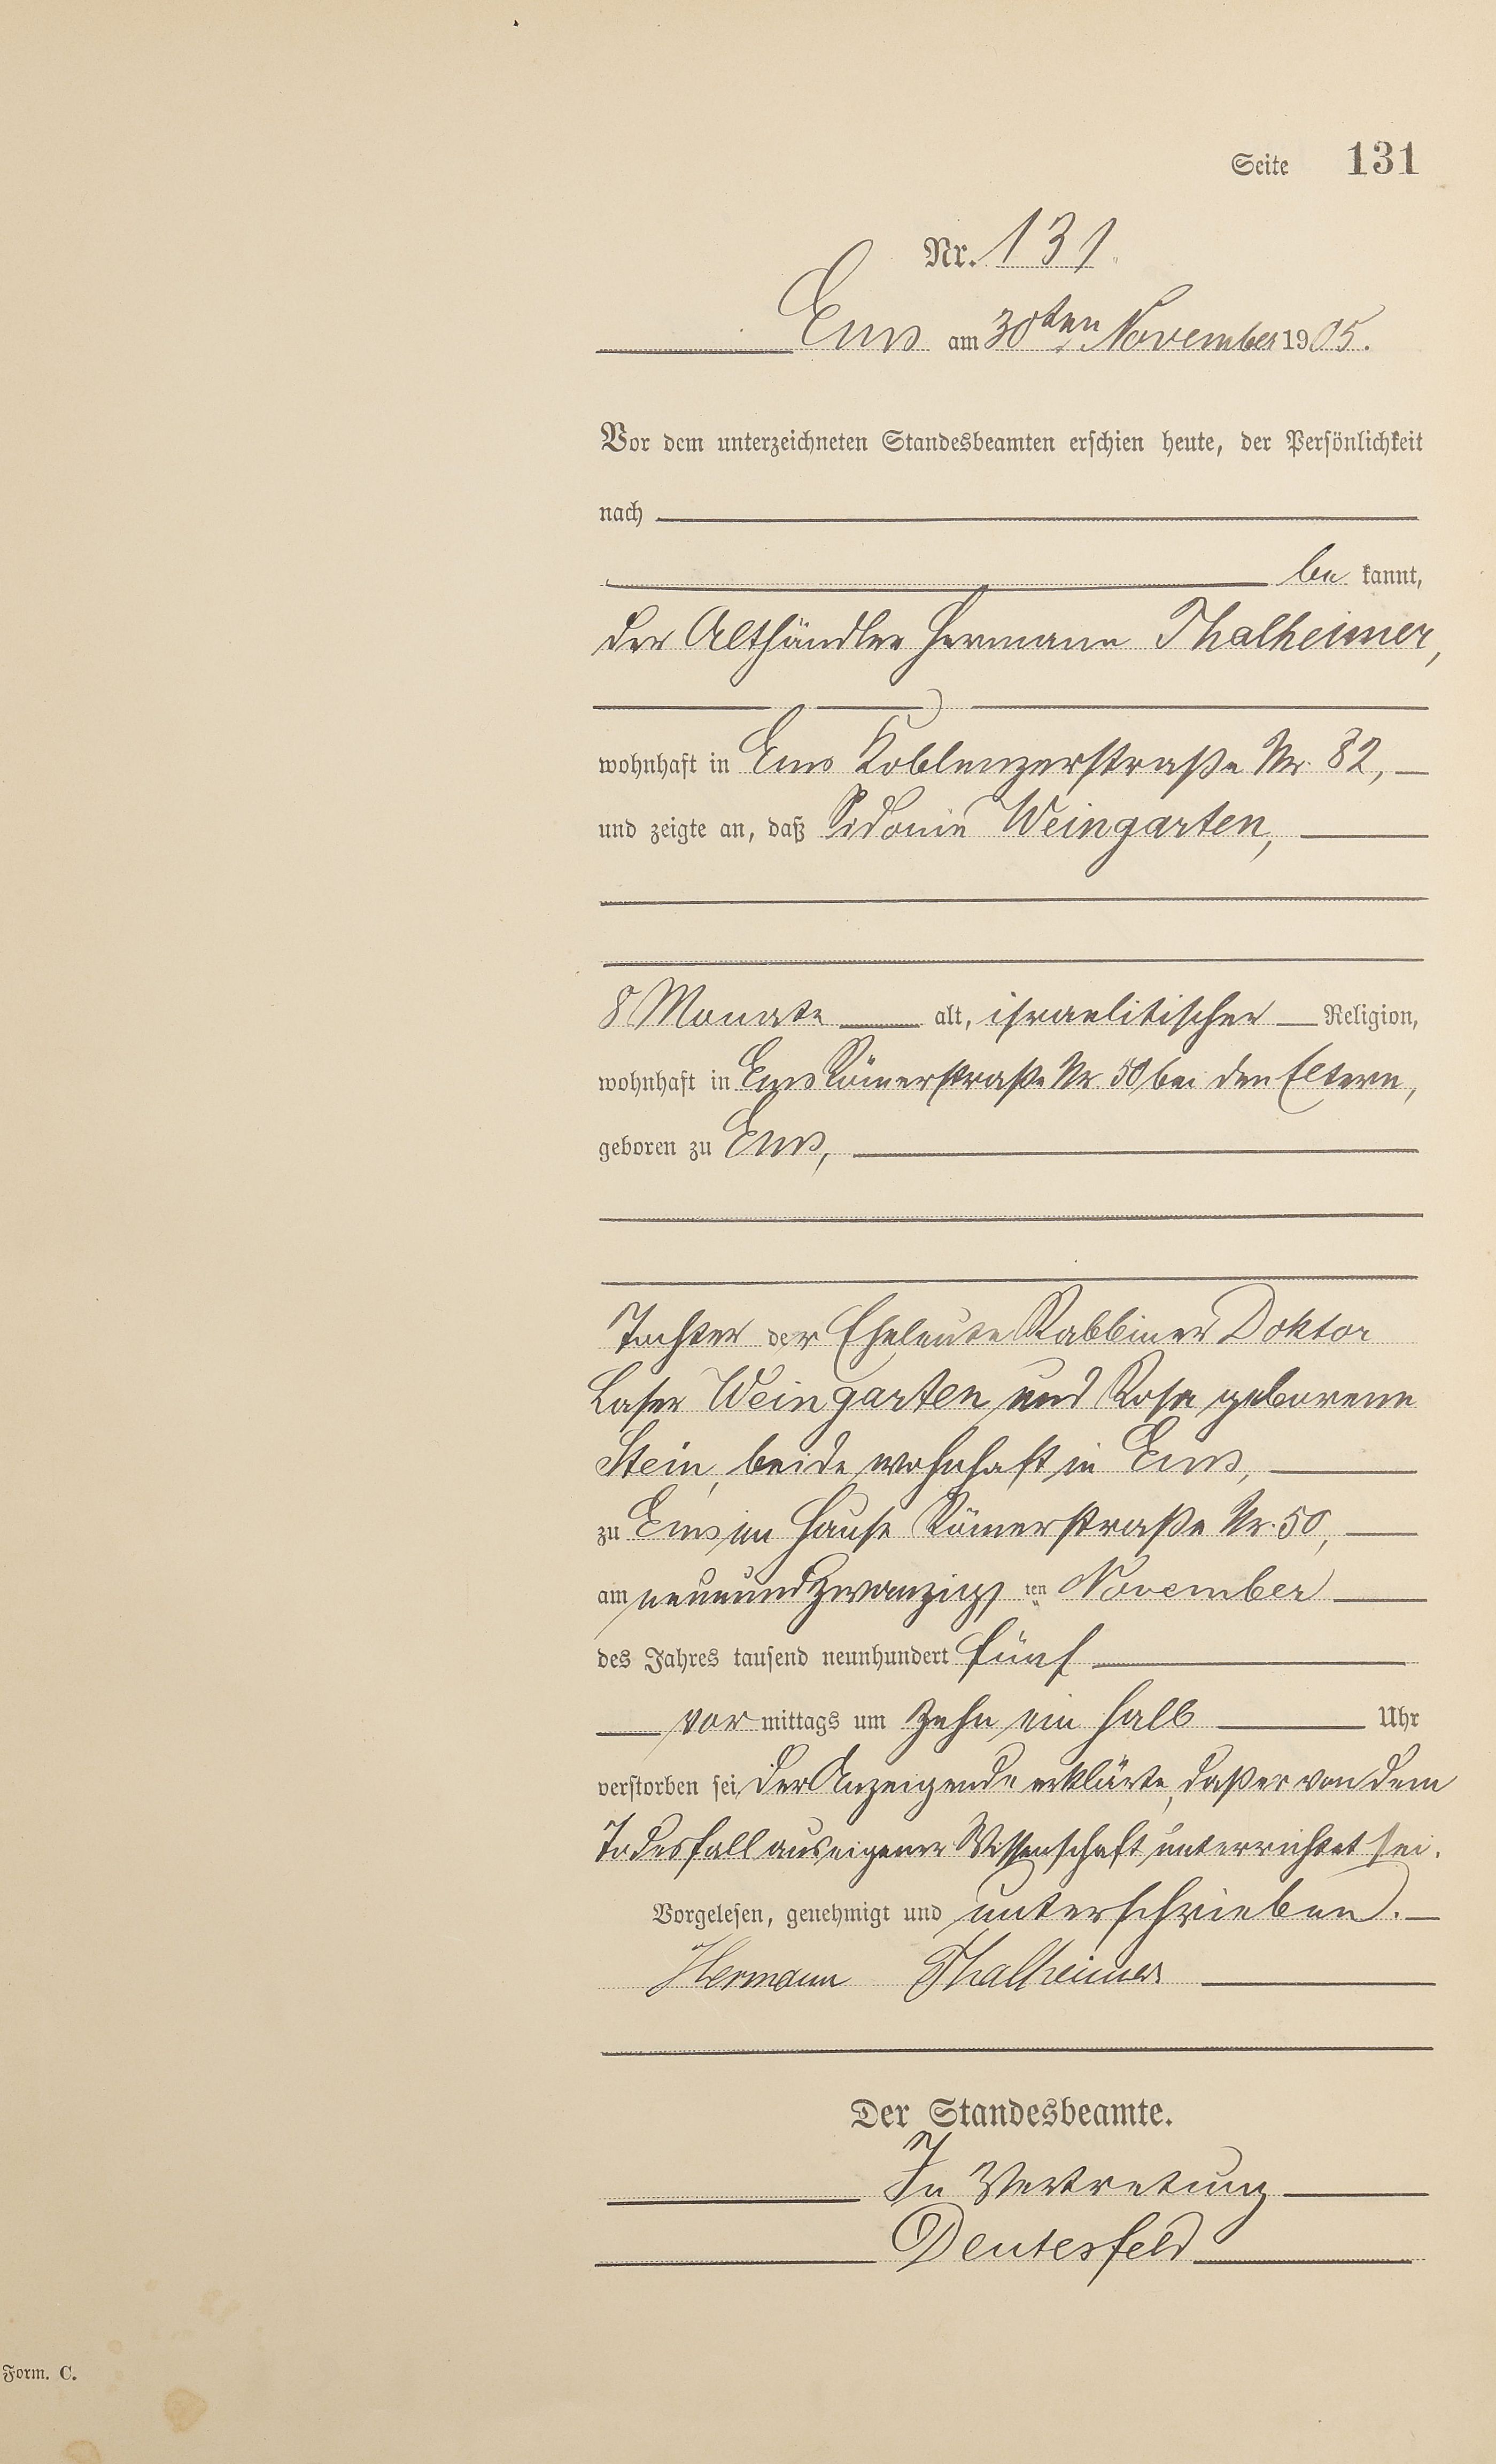 Seite 131
Nr. 131.
Ems am 30ten November 1905.
Vor dem unterzeichneten Standesbeamten erschien heute, der Persönlichkeit
nach
be kannt,
der Althändler Hermann Thalheimer,
wohnhaft in Ems Koblenzerstraße Nr. 82,
und zeigte an, daß Sidonie Weingarten,
8 Monate alt, israelitischer Religion,
wohnhaft in Ems Römerstraße Nr. 50 bei den Eltern,
geboren zu Ems,
Tochter der Eheleute Rabbiner Doktor
Laser Weingarten und Rosa geborene
Stein, beide wohnhaft in Ems,
zu Ems im Hause Römerstraße Nr. 50,
am neunundzwanzigs ten November
des Jahres tausend neunhundert fünf
vor mittags um zehn ein halb Uhr
verstorben sei. Der Anzeigende erklärte, daß er von dem
Todesfall aus eigener Wissenschaft unterrichtet sei.
Vorgelesen, genehmigt und unterschrieben.
Hermann Thalheimer
Der Standesbeamte.
In Vertretung
Deutesfeld
Form. C.